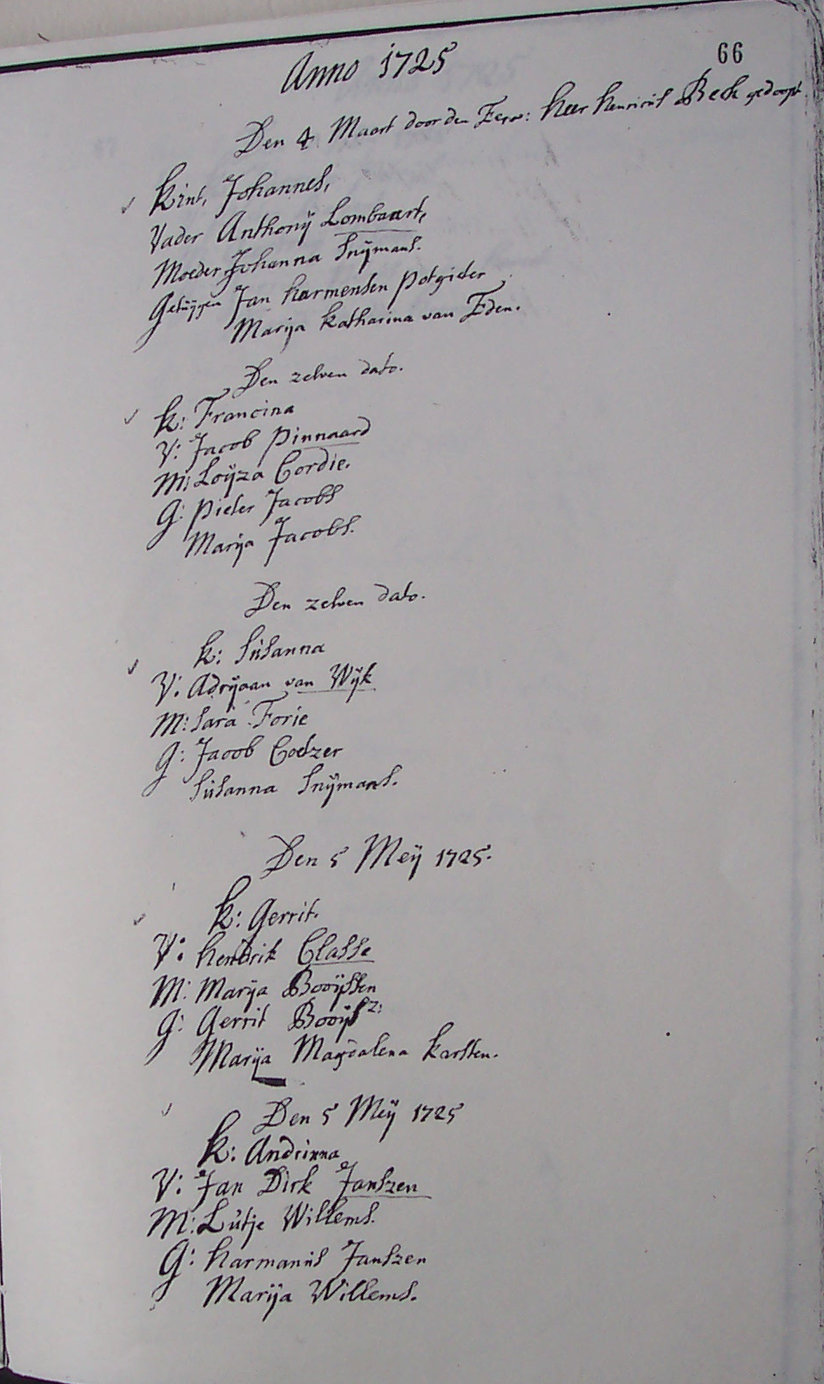 Anno 1725
66
Den 4 Maart door den Eerw: Heer Henricus Beck gedoopt.
Kint, Johannes,
Vader Anthonÿ Lombaart,
Moeder Johanna Snÿmans.
Getuÿgen Jan Harmensen Potgieter
Marÿa Katharina van Eden.
Den zelven dato.
K: Francina
V: Jacob Pinnaard
M: Loÿza Cordie.
G: Pieter Jacobs
Marÿa Jacobs.
Den zelven dato.
K: Susanna
V: Adrÿaan van Wÿk
M: Sara Forie
G: Jacob Codzer
Susanna Snÿmans.
Den 5 Meÿ 1725.
K: Gerrit.
V: Hendrik Classe
M: Marÿa Booÿssen
G: Gerrit Booÿsz:
Marÿa Magdalena Karsten.
Den 5 Meÿ 1725
K: Andrinna
V: Jan Dirk Janszen
M: Lutje Willems.
G: Harmanus Janszen
Marÿa Willems.